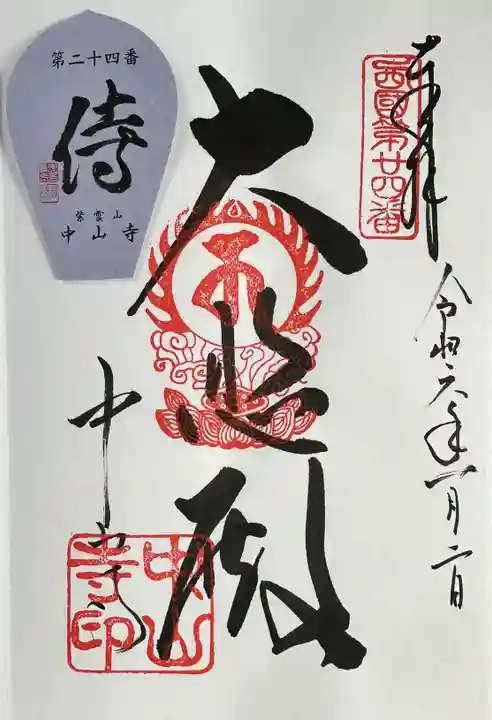 奉拝
西国第廿四番
令和六年一月二日
大悲殿
中山寺
中山寺印
第二十四番
傳
紫雲山
中山寺